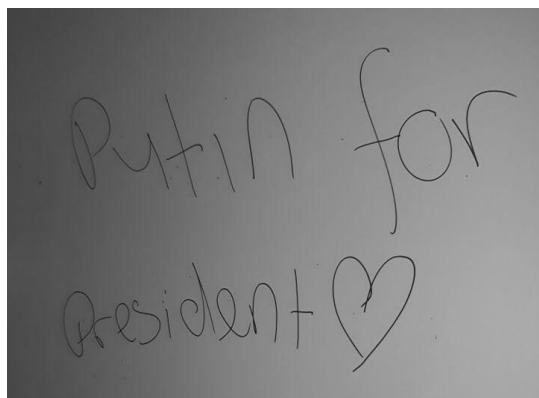 Putin for
President ♡